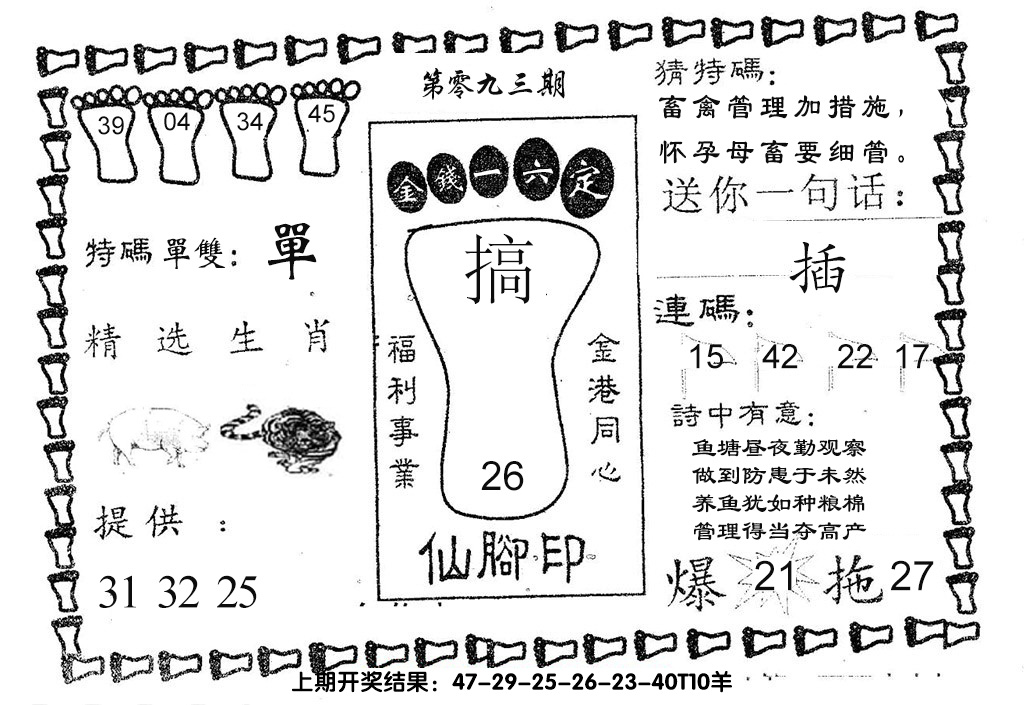 第零九三期
39 04 34 45
特碼單雙：單
精选生肖
提供：
31 32 25
金錢一六定
搞
福利事業
金港同心
26
仙腳印
猜特碼：
畜禽管理加措施，
怀孕母畜要细管。
送你一句话：
插
連碼：
15 42 22 17
詩中有意：
鱼塘昼夜勤观察
做到防患于未然
养鱼犹如种粮棉
管理得当夺高产
爆 21 拖 27
上期开奖结果：47-29-25-26-23-40T10羊